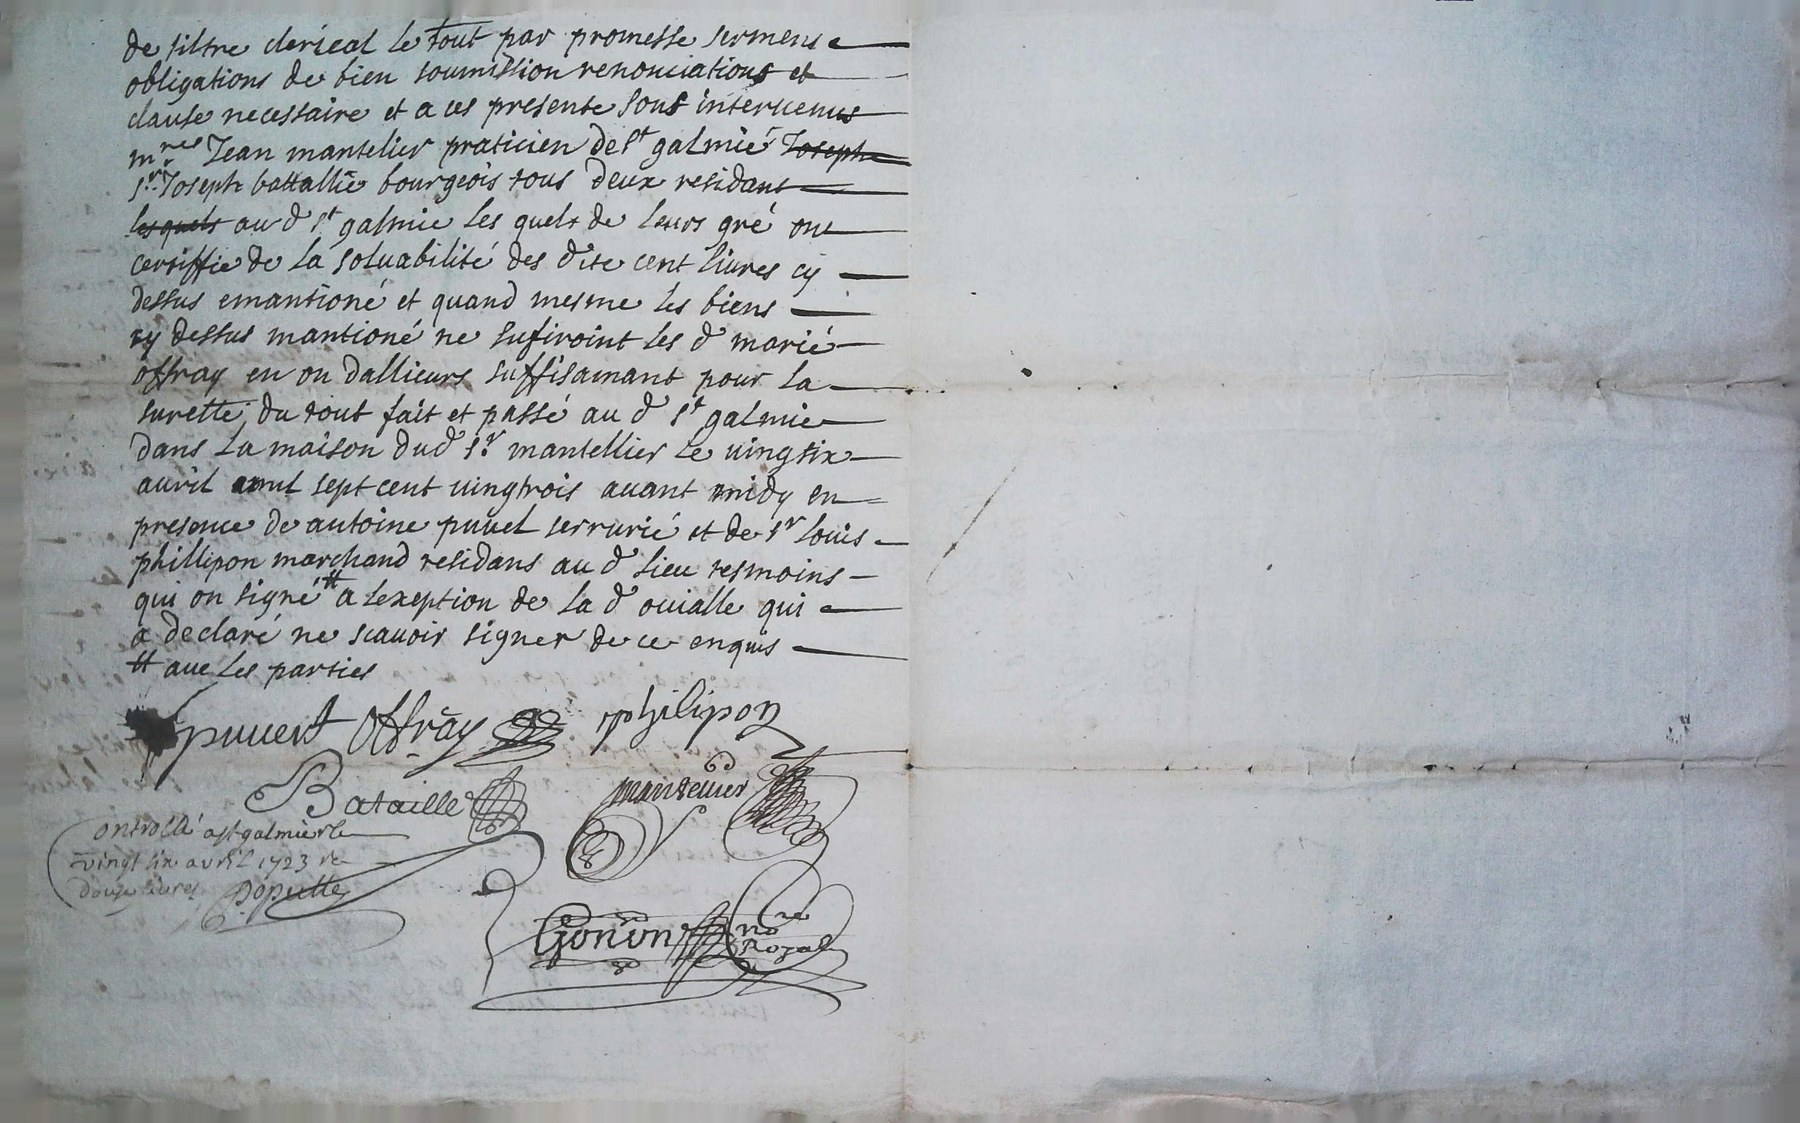 de tiltre clerical le tout par promesse sermens
obligations de bien soumission renonciations et
clause necessaire et a ces presente sont intervenus
mres Jean mantelier praticien de st galmié Joseph
sr Joseph battallie bourgeois tous deux residant
lesquels au d st galmie les quels de leurs gré ont
certiffie de la soluabilité des dite cent livres cy
dessus emantioné et quand mesme les biens
cy dessus mantioné ne sufiroint les d marié
offray en on dallieurs suffisamant pour la
surette du tout fait et passé au d st galmie
dans la maison dud sr mantellier le vingtix
avril mil sept cent vingtrois avant midy en
presence de antoine puvel serrurié et de sr louis
phillipon marchand residans au d lieu tesmoins
qui on signé # a lexeption de la d ovialle qui
a declaré ne scavoir signer de ce enquis
# avec les parties
puvert offray philipon
Bataille mantellier
ontrollé a st galmier le
vingt six avril 1723 re
douze livres
Gonon no re
Royal